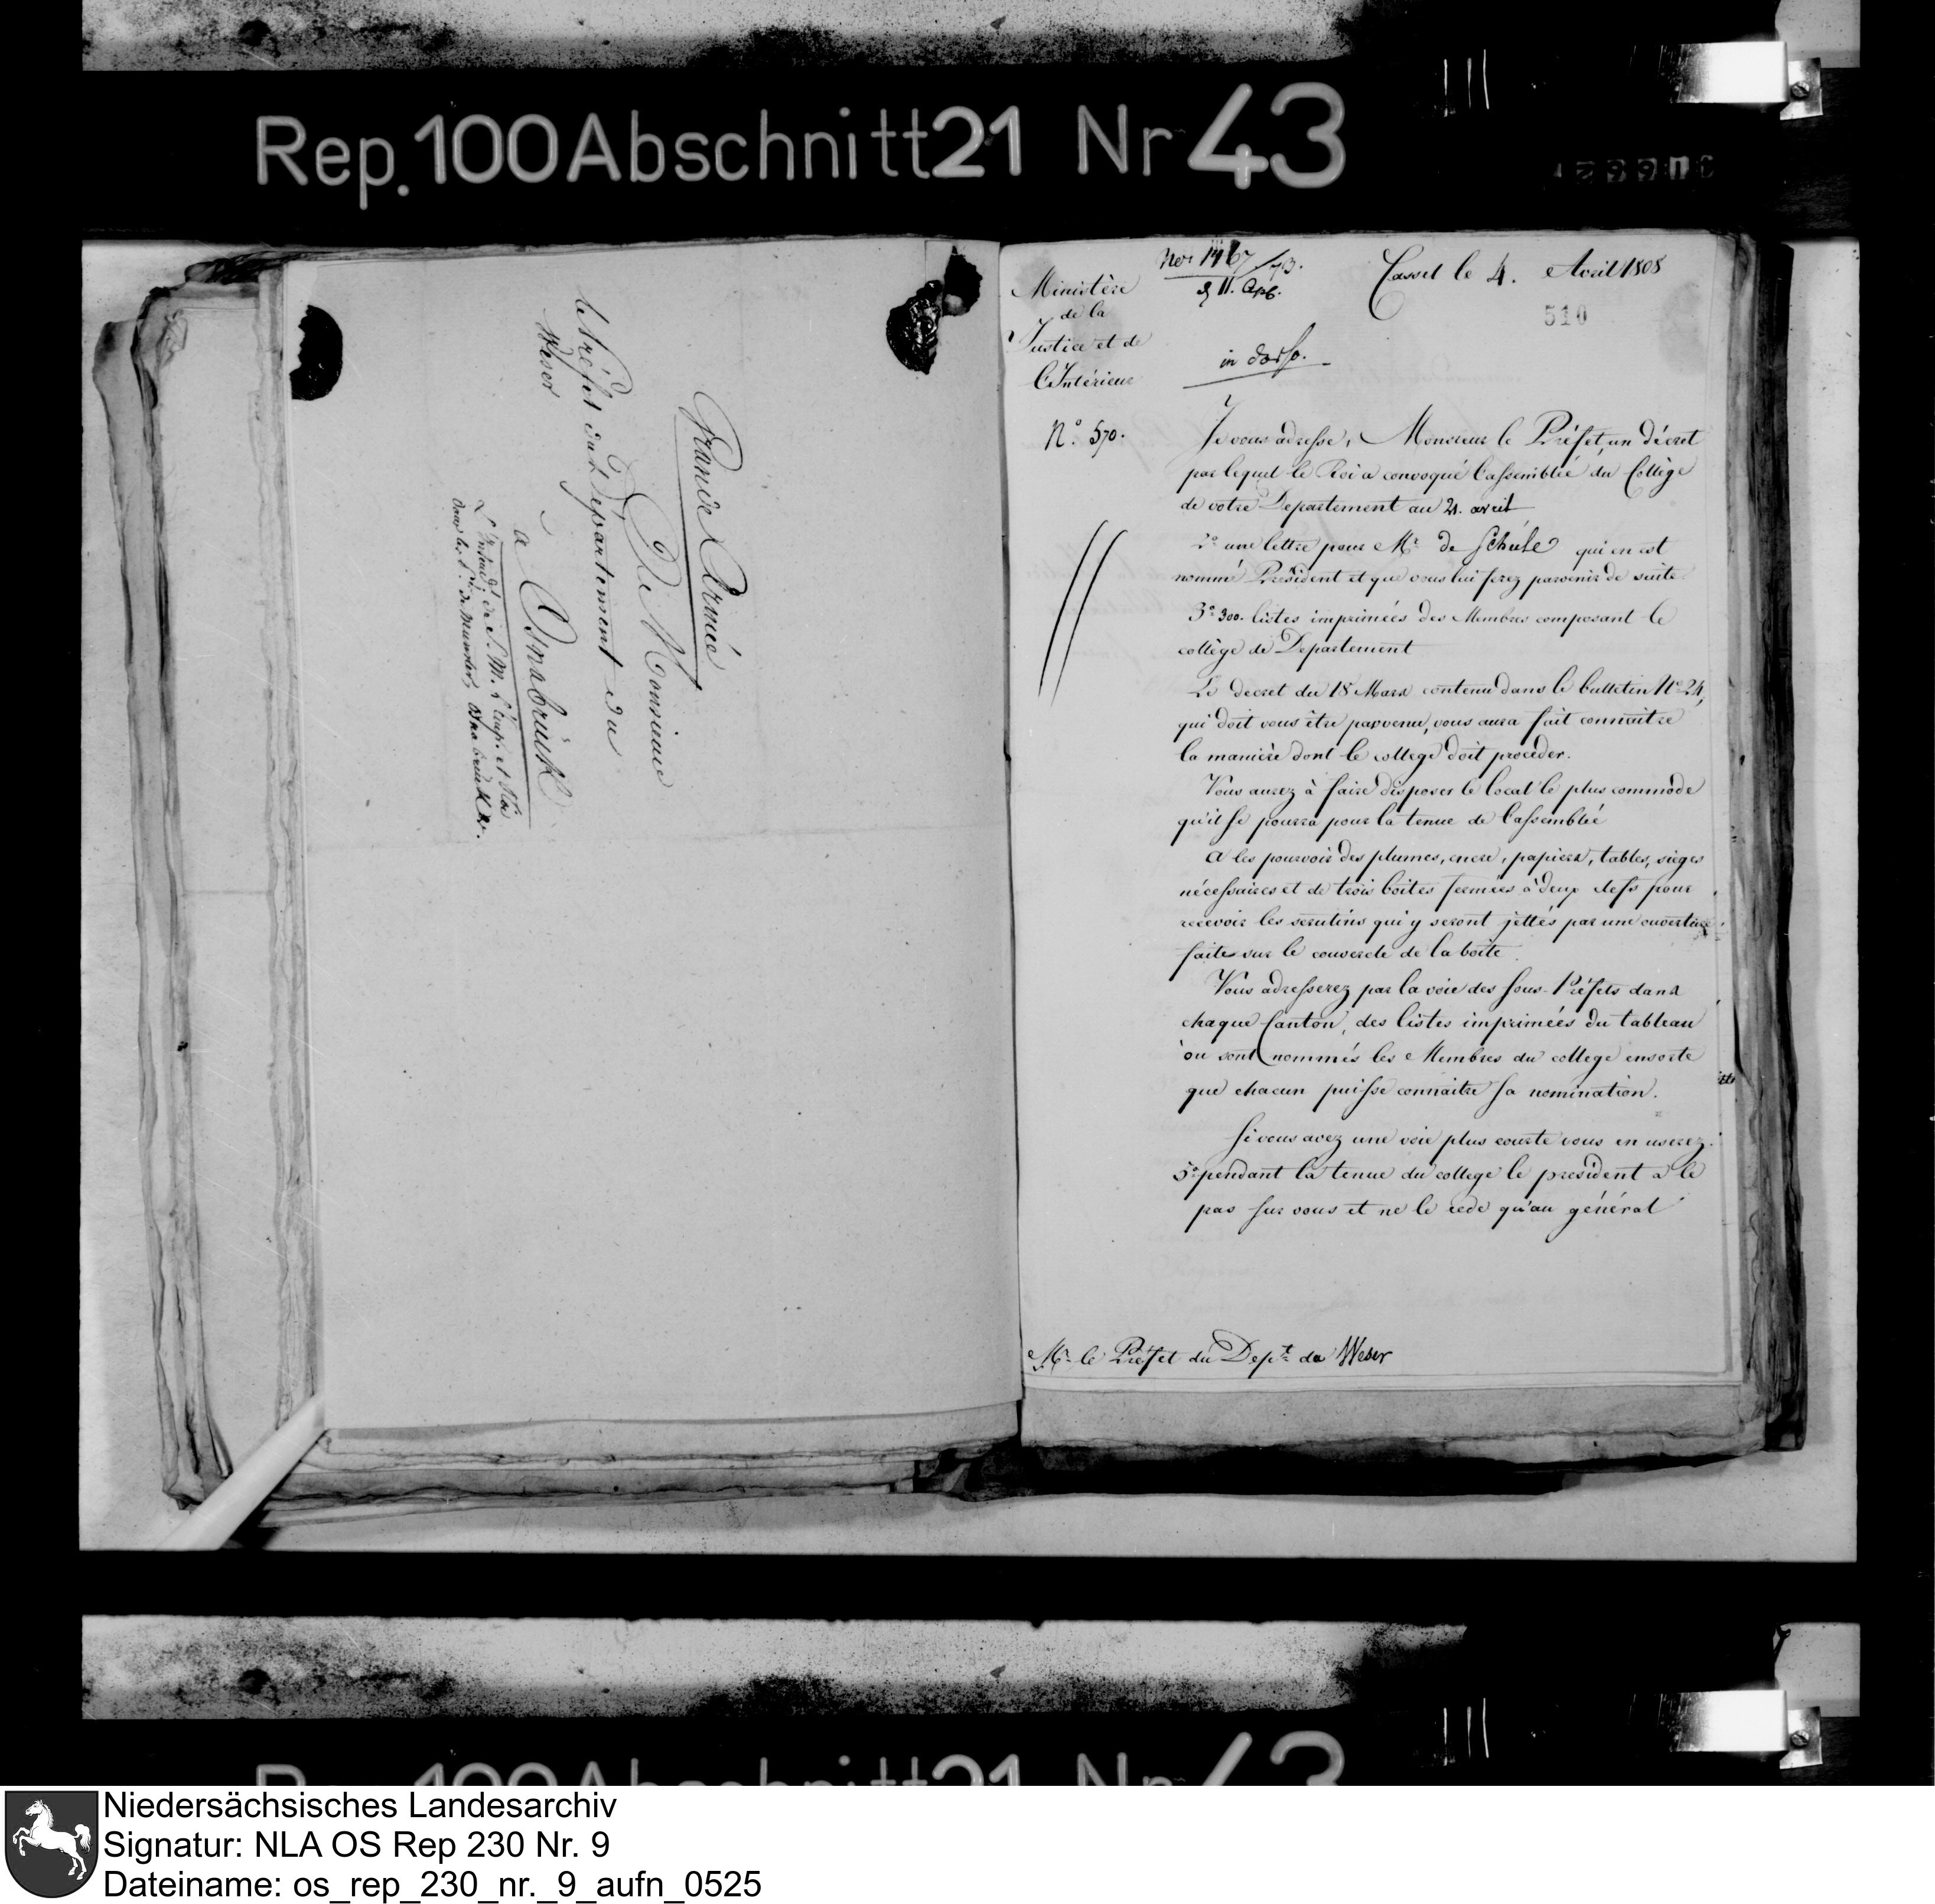 Rep. 100 Abschnitt 21 Nr 43
Grande Armée
De Monsieur
le Préfet du Departement du
Weser
a Osnabrück
L'Intend. de S. M. L'Emp. et Roi
dans les de Munster, Osnabruck &c.
Nor 1467/73.
11. Apr.
Cassel le 4. Avril 1808
510
Ministère
de la
Justice et de
l'Intérieur
in dorso.
N.° 570.
Je vous adresse, Monsieur le Préfet, un décret
par lequel le Roi a convoqué l'assemblée du Collège
de votre Departement au 21. avril
2° une lettre pour Mr. de Schele qui en est
nommé Président et que vous lui ferez parvenir de suite
3° 300. listes imprimées des Membres composant le
collège de Departement
Le decret du 18 Mars contenu dans le bulletin No 24,
qui doit vous être parvenu, vous aura fait connaitre
la manière dont le college doit proceder.
Vous aurez à faire disposer le local le plus commode
qu'il se pourra pour la tenue de l'assemblée
A les pourvoir des plumes, encre, papiers, tables, sièges
nécessaires et de trois boites fermées à deux clefs pour
recevoir les scrutins qui y seront jettés par une ouverture
faite sur le couvercle de la boite.
Vous adresserez par la voie des Sous-Préfets dans
chaque Canton, des listes imprimées du tableau
ou sont nommés les Membres du college ensorte
que chacun puisse connaitre sa nomination.
Si vous avez une voie plus courte vous en userez.
5° pendant la tenue du college le president a le
pas sur vous et ne le cede qu'au général
Mr. le Préfet du Dept. du Weser
Rep. 100 Abschnitt 21 Nr 43
Niedersächsisches Landesarchiv
Signatur: NLA OS Rep 230 Nr. 9
Dateiname: os_rep_230_nr._9_aufn_0525